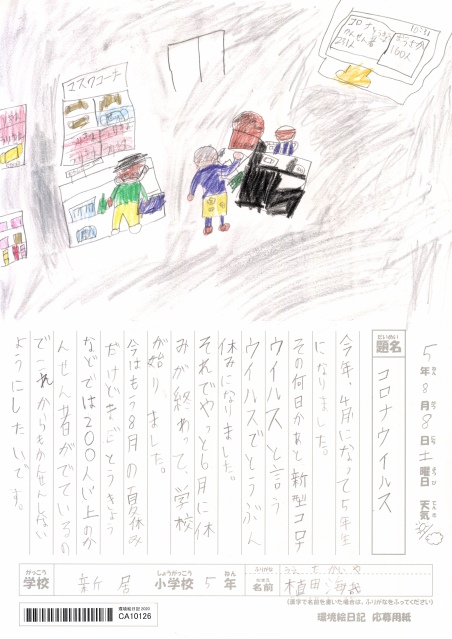 マスクコーナー
コロナ
かんせん者
231人
おおさか
160人
10:31
5年8月8日土曜日 天気
だいめい
題名
コロナウイルス
今年、4月になって5年生
になりました。
その何日かあと新型コロナ
ウイルスと言う
ウイルスでとうぶん
休みになりました。
それでやっと6月に休
みが終わって、学校
が始りました。
今はもう8月の夏休み
だけどまだとうきょう
などでは200人以上のか
んせん者がでているの
でこれからもかんせんしない
ようにしたいです。
がっこう
学校
新居
しょうがっこう
小学校
5
ねん
年
ふりがな
なまえ
名前
植田海
(漢字で名前を書いた場合は、ふりがなをふってください)
環境絵日記2020
CA10126
環境絵日記 応募用紙